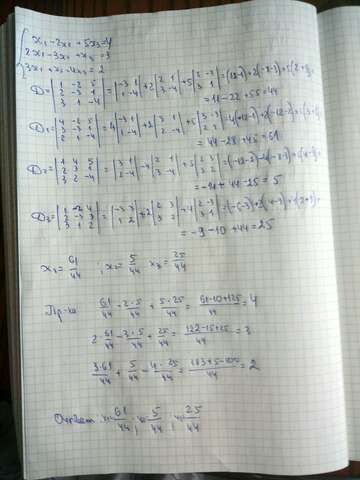 x₁-2x₂+5x₃=4
2x₁-3x₂+x₃=3
3x₁+x₂-4x₃=2
D=|1 -2 5; 2 -3 1; 3 1 -4|=|-3 1; 1 -4|+2|2 1; 3 -4|+5|2 -3; 3 1|=(12-1)+2(-8-3)+5(2+9)=
=11-22+55=44
D₁=|4 -2 5; 3 -3 1; 2 1 -4|=4|-3 1; 1 -4|+2|3 1; 2 -4|+5|3 -3; 2 1|
=44-28+45=61
D₂=|1 4 5; 2 3 1; 3 2 -4|=|3 1; 2 -4|-4|2 1; 3 -4|+5|2 3; 3 2|
=-14+44-25=5
D₃=|1 -2 4; 2 -3 3; 3 1 2|=|-3 3; 1 2|+2|2 3; 3 2|+4|2 -3; 3 1|
=-9-10+44=25
x₁=61/44 ; x₂=5/44 x₃=25/44
Пр-ка 61/44-2·5/44+5·25/44=(61-10+125)/44=4
2·61/44-3·5/44+25/44=(122-15+25)/44=3
3·61/44+5/44-4·25/44=(183+5-100)/44=2
Ответ: 61/44 ; 5/44 ; 25/44